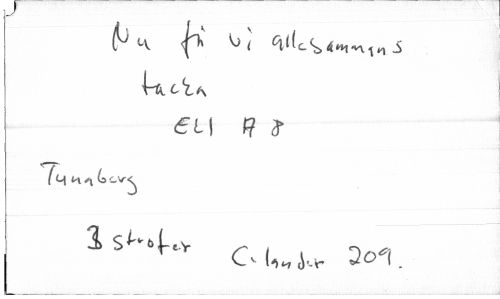 Nu få vi allesammans
tacka
EU A 8
Tunaberg
3 strofer
Celander 209.